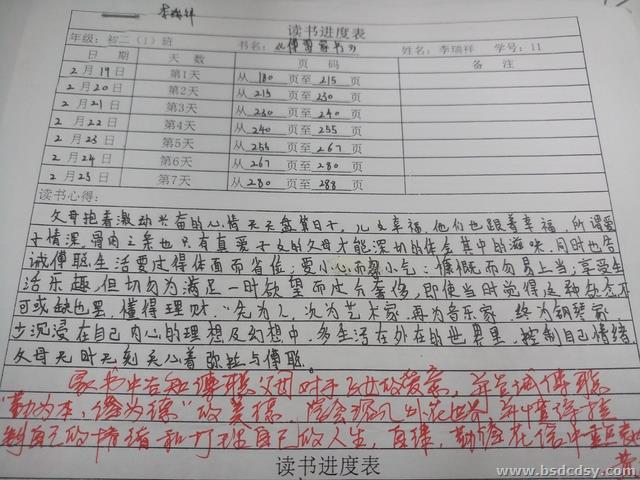 李瑞祥
读书进度表
年级：初二（1）班 书名：《傅雷家书》 姓名：李瑞祥 学号：11
日 期 天 数 页 码 备 注
2 月 19 日 第1天 从 180 页至 215 页
2 月 20 日 第2天 从 215 页至 230 页
2 月 21 日 第3天 从 230 页至 240 页
2 月 22 日 第4天 从 240 页至 255 页
2 月 23 日 第5天 从 255 页至 267 页
2 月 24 日 第6天 从 267 页至 280 页
2 月 25 日 第7天 从 280 页至 288 页
读书心得：
父母抱着激动兴奋的心情天天盘算日子，儿女幸福，他们也跟着幸福，所谓爱
子情深，骨肉之亲也只有真爱子女的父母才能深切的体会其中的滋味，同时也告
诫傅聪生活要过得体面而省俭；要小心而勿小气；慷慨而勿易上当；享受生
活乐趣，但切勿为满足一时欲望而过分奢侈，即使当时觉得这种欲念不
可或缺也罢，懂得理财，"先为人，次为艺术家，再为音乐家，终为钢琴家。
少沉浸在自己内心的理想及幻想中，多生活在外在的世界里，控制自己情绪，
父母无时无刻关心着弥拉与傅聪。
家书中告知傅聪父母对于子女的
"勤为本，德为" 的美德，
制自己的情绪和打理自己的人生，
读书进度表
www.bsdcdsy.com